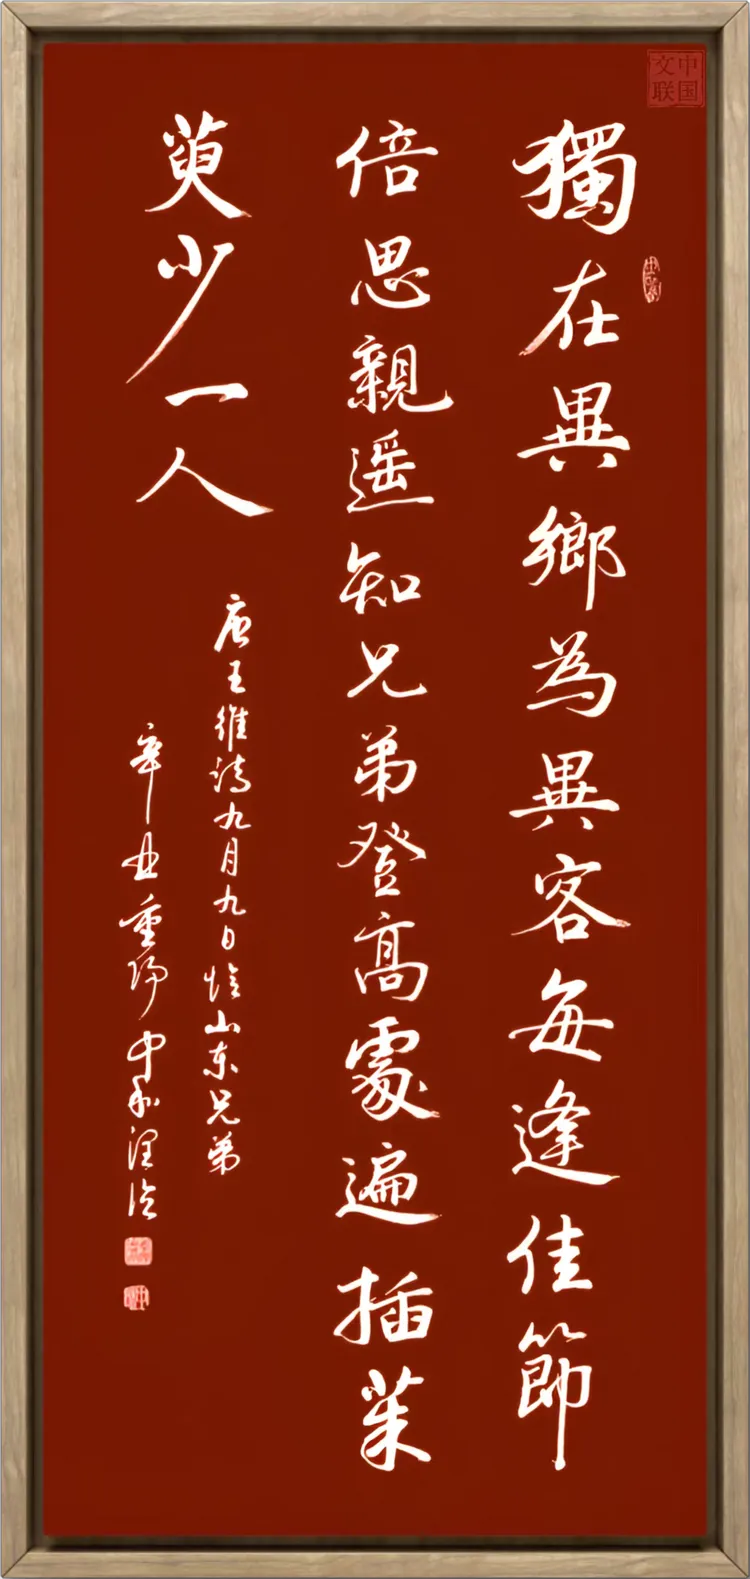 中国文联
獨在異鄉為異客每逢佳節
倍思親遥知兄弟登高處遍插茱
萸少一人
唐王維詩九月九日憶山东兄弟
辛丑重陽